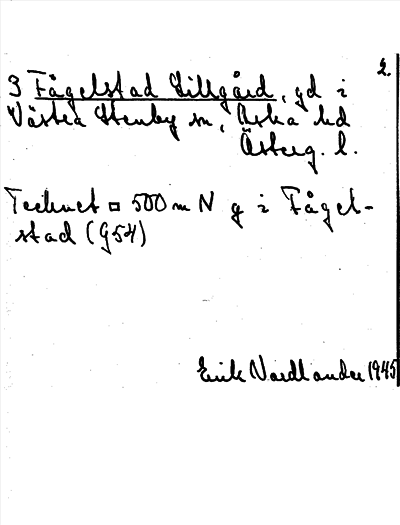 2.
3 Fågelstad Lillgård, gd i
Västra Stenby sn, Aska hd
Österg. l.
Tecknet □ 500 m N g i Fågel-
stad (G54)
Erik Nordlander 1945